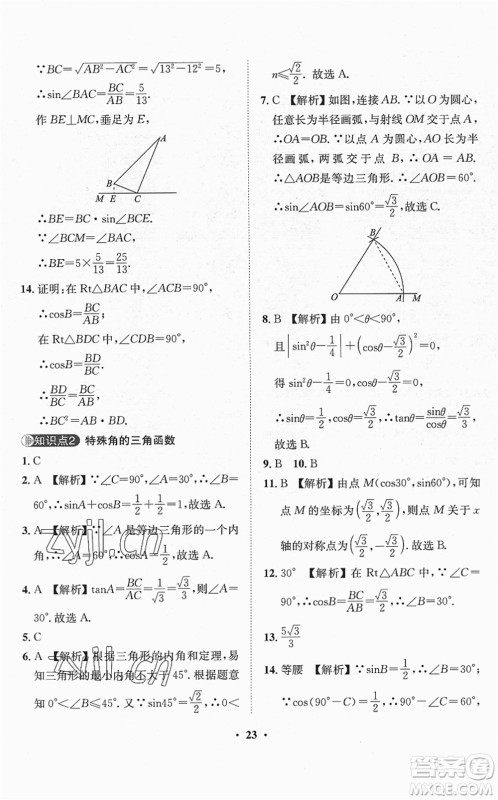 ∵BC=√(AB²−AC²)=√(13²−12²)=5，
∴sin∠BAC=BC/AB=5/13.
作 BE⊥MC，垂足为 E.
A
B
M E C
∴BE=BC·sin∠BCE.
∵∠BAC=∠BCE，
∴BE=5×5/13=25/13.
14. 证明：在 Rt△BAC 中，∠BAC=90°，
∴cosB=BC/AB.
在 Rt△BDC 中，∠BDC=90°，
∴cosB=BD/BC.
∴BD/BC=BC/AB.
∴BC²=AB·BD.
知识点2 特殊角的三角函数
1. C
2. A 【解析】∵∠C=90°，∠A=30°，∴∠B=
60°，∴sinA+cosB=1/2+1/2=1，故选 A.
3. A 【解析】∵∠A 是等边三角形的一个内
角，∴∠A=60°，∴cosA=1/2，故选 A.
4. A 【解析】tanA=BC/AC=√3/1=√3，则∠A=
60°. 故选 A.
5. C
6. A 【解析】根据三角形的内角和定理，易
知三角形的最小内角不大于 60°. 根据题意
知 0°<∠A≤45°. 又 sin45°=√2/2，∴0<
n≤√2/2. 故选 A.
7. C 【解析】如图，连接 AB. ∵以 O 为圆心，
任意长为半径画弧，与射线 OM 交于点 A，
∴OA=OB. ∵以 A 为圆心，AO 长为半径画弧，两弧交于点 B，∴OA=AB.
∴△AOB 是等边三角形，∴∠AOB=60°.
∴sin∠AOB=sin60°=√3/2，故选 C.
B
O A M
8. B 【解析】由 0°<θ<90°，
且|sin²θ−1/4|+(cosθ−√3/2)²=0，
得 sin²θ=1/4，cosθ=√3/2，∴tanθ=sinθ/cosθ=√3/3.
9. B 10. B
11. B 【解析】由 M(cos30°，sin60°)，可知
点 M 的坐标为(√3/2，√3/2)，则点 M 关于 x
轴的对称点为(√3/2，−√3/2). 故选 B.
12. 30° 【解析】在 Rt△ABC 中，∵∠C=
90°，cosB=BC/AB=√3/2，∴∠B=30°.
13. 5√3/3
14. 等腰 【解析】∵sinB=1/2，∴∠B=30°，
∵cos(90°−∠C)=1/2，∴90°−∠C=
• 23 •
zyjl.cn
答案圈
MXQE.COM